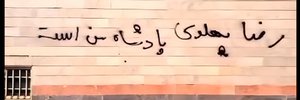 رضا پهلوی پادشاه من است